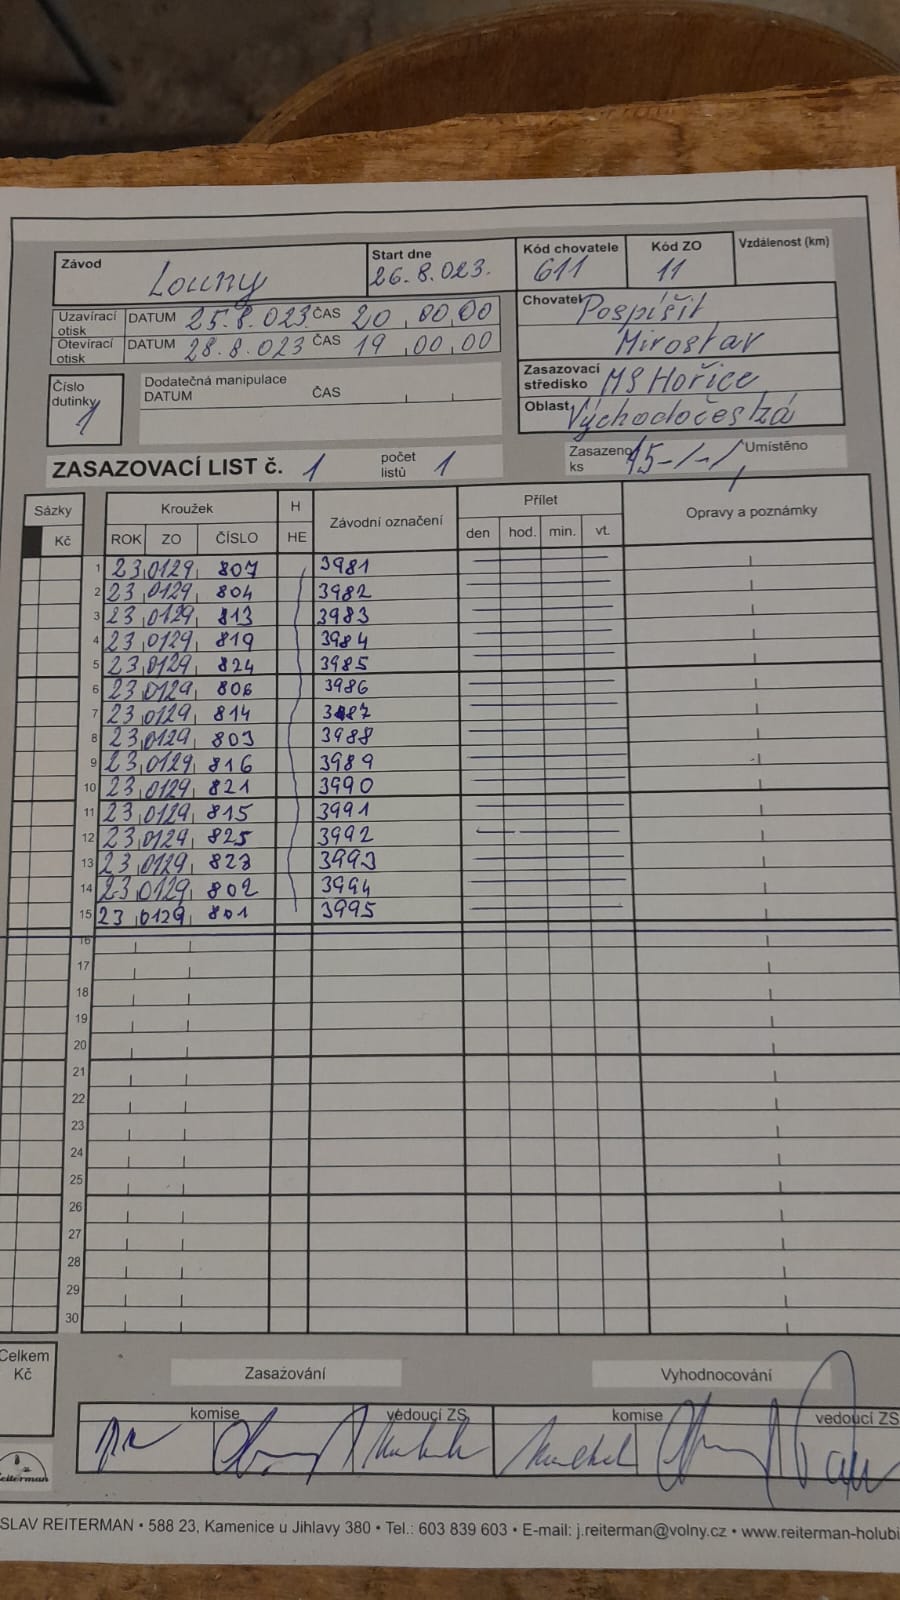 Závod Louny Start dne 26.8.023. Kód chovatele 611 Kód ZO 11 Vzdálenost (km)
Uzavírací otisk DATUM 25.8.023 ČAS 20 00 00
Otevírací otisk DATUM 28.8.023 ČAS 19 00 00
Chovatel Pospíšil
Miroslav
Číslo dutinky 1
Dodatečná manipulace
DATUM ČAS
Zasazovací středisko MS Hořice
Oblast Východočeská
ZASAZOVACÍ LIST č. 1 počet listů 1 Zasazeno ks 15-/-/ Umístěno
Sázky Kroužek H Závodní označení Přílet Opravy a poznámky
Kč ROK ZO ČÍSLO HE den hod. min. vt.
1 23 0129 807 3981
2 23 0129 804 3982
3 23 0129 813 3983
4 23 0129 819 3984
5 23 0129 824 3985
6 23 0129 806 3986
7 23 0129 814 3987
8 23 0129 803 3988
9 23 0129 816 3989
10 23 0129 821 3990
11 23 0129 815 3991
12 23 0129 825 3992
13 23 0129 823 3993
14 23 0129 802 3994
15 23 0129 801 3995
16
17
18
19
20
21
22
23
24
25
26
27
28
29
30
Celkem Kč
Zasazování Vyhodnocování
komise vedoucí ZS komise vedoucí ZS
Reiterman
SLAV REITERMAN • 588 23, Kamenice u Jihlavy 380 • Tel.: 603 839 603 • E-mail: j.reiterman@volny.cz • www.reiterman-holubi